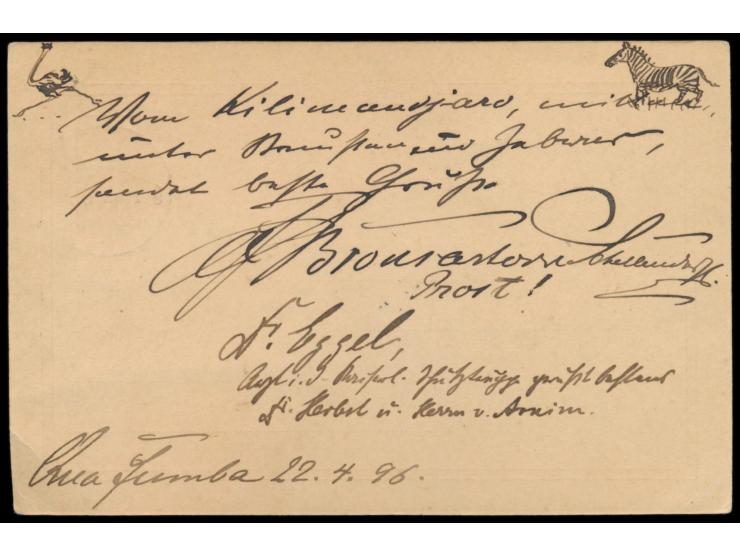 Vom Kilimandjaro, mitten
unter Straußen und Zebras,
sendet beste Grüße
Bronsart von Schellendorff.
Prost!
Dr. Eggel,
Arzt i. d. Kaiserl. Schutztruppe grüßt bestens
Dr. Herbst u. Herrn v. Arnim.
Kwa Jumba 22.4.96.